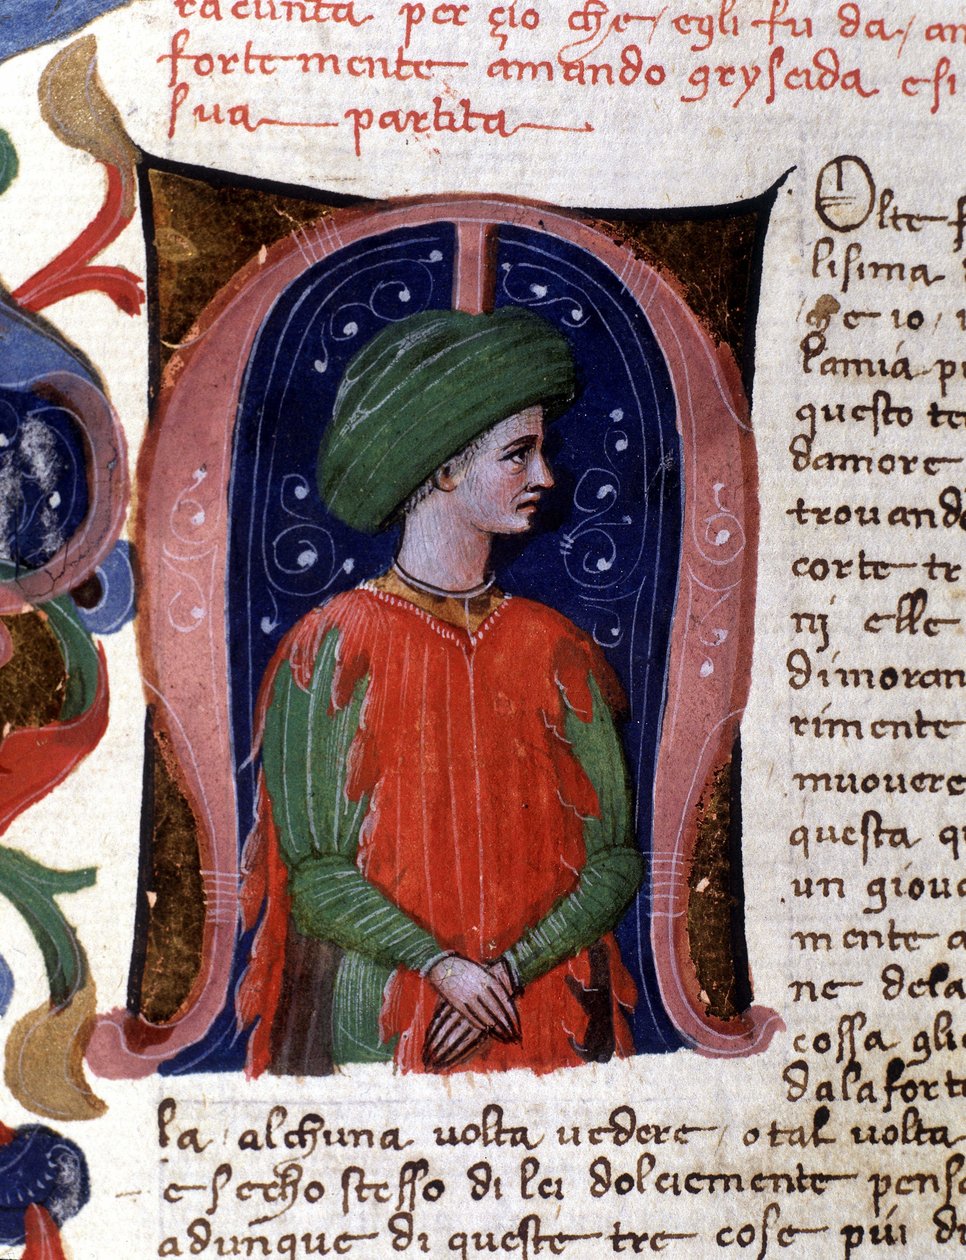 racunta per çio che / egli fu da / an
fortemente amando gryseida e si
sua partita
Olte f
lisima
ge io /
lamia pi
questo te
damiore
trovando
corte tr
nj elle
dimoran
rimente
muovere
questa qu
un giova
mente a
ne dela
cossa glie
dala forte
la alchuna volta vedere / o tal volta
e secho stesso di lei dolciemente pensa
adunque di queste tre cose più di